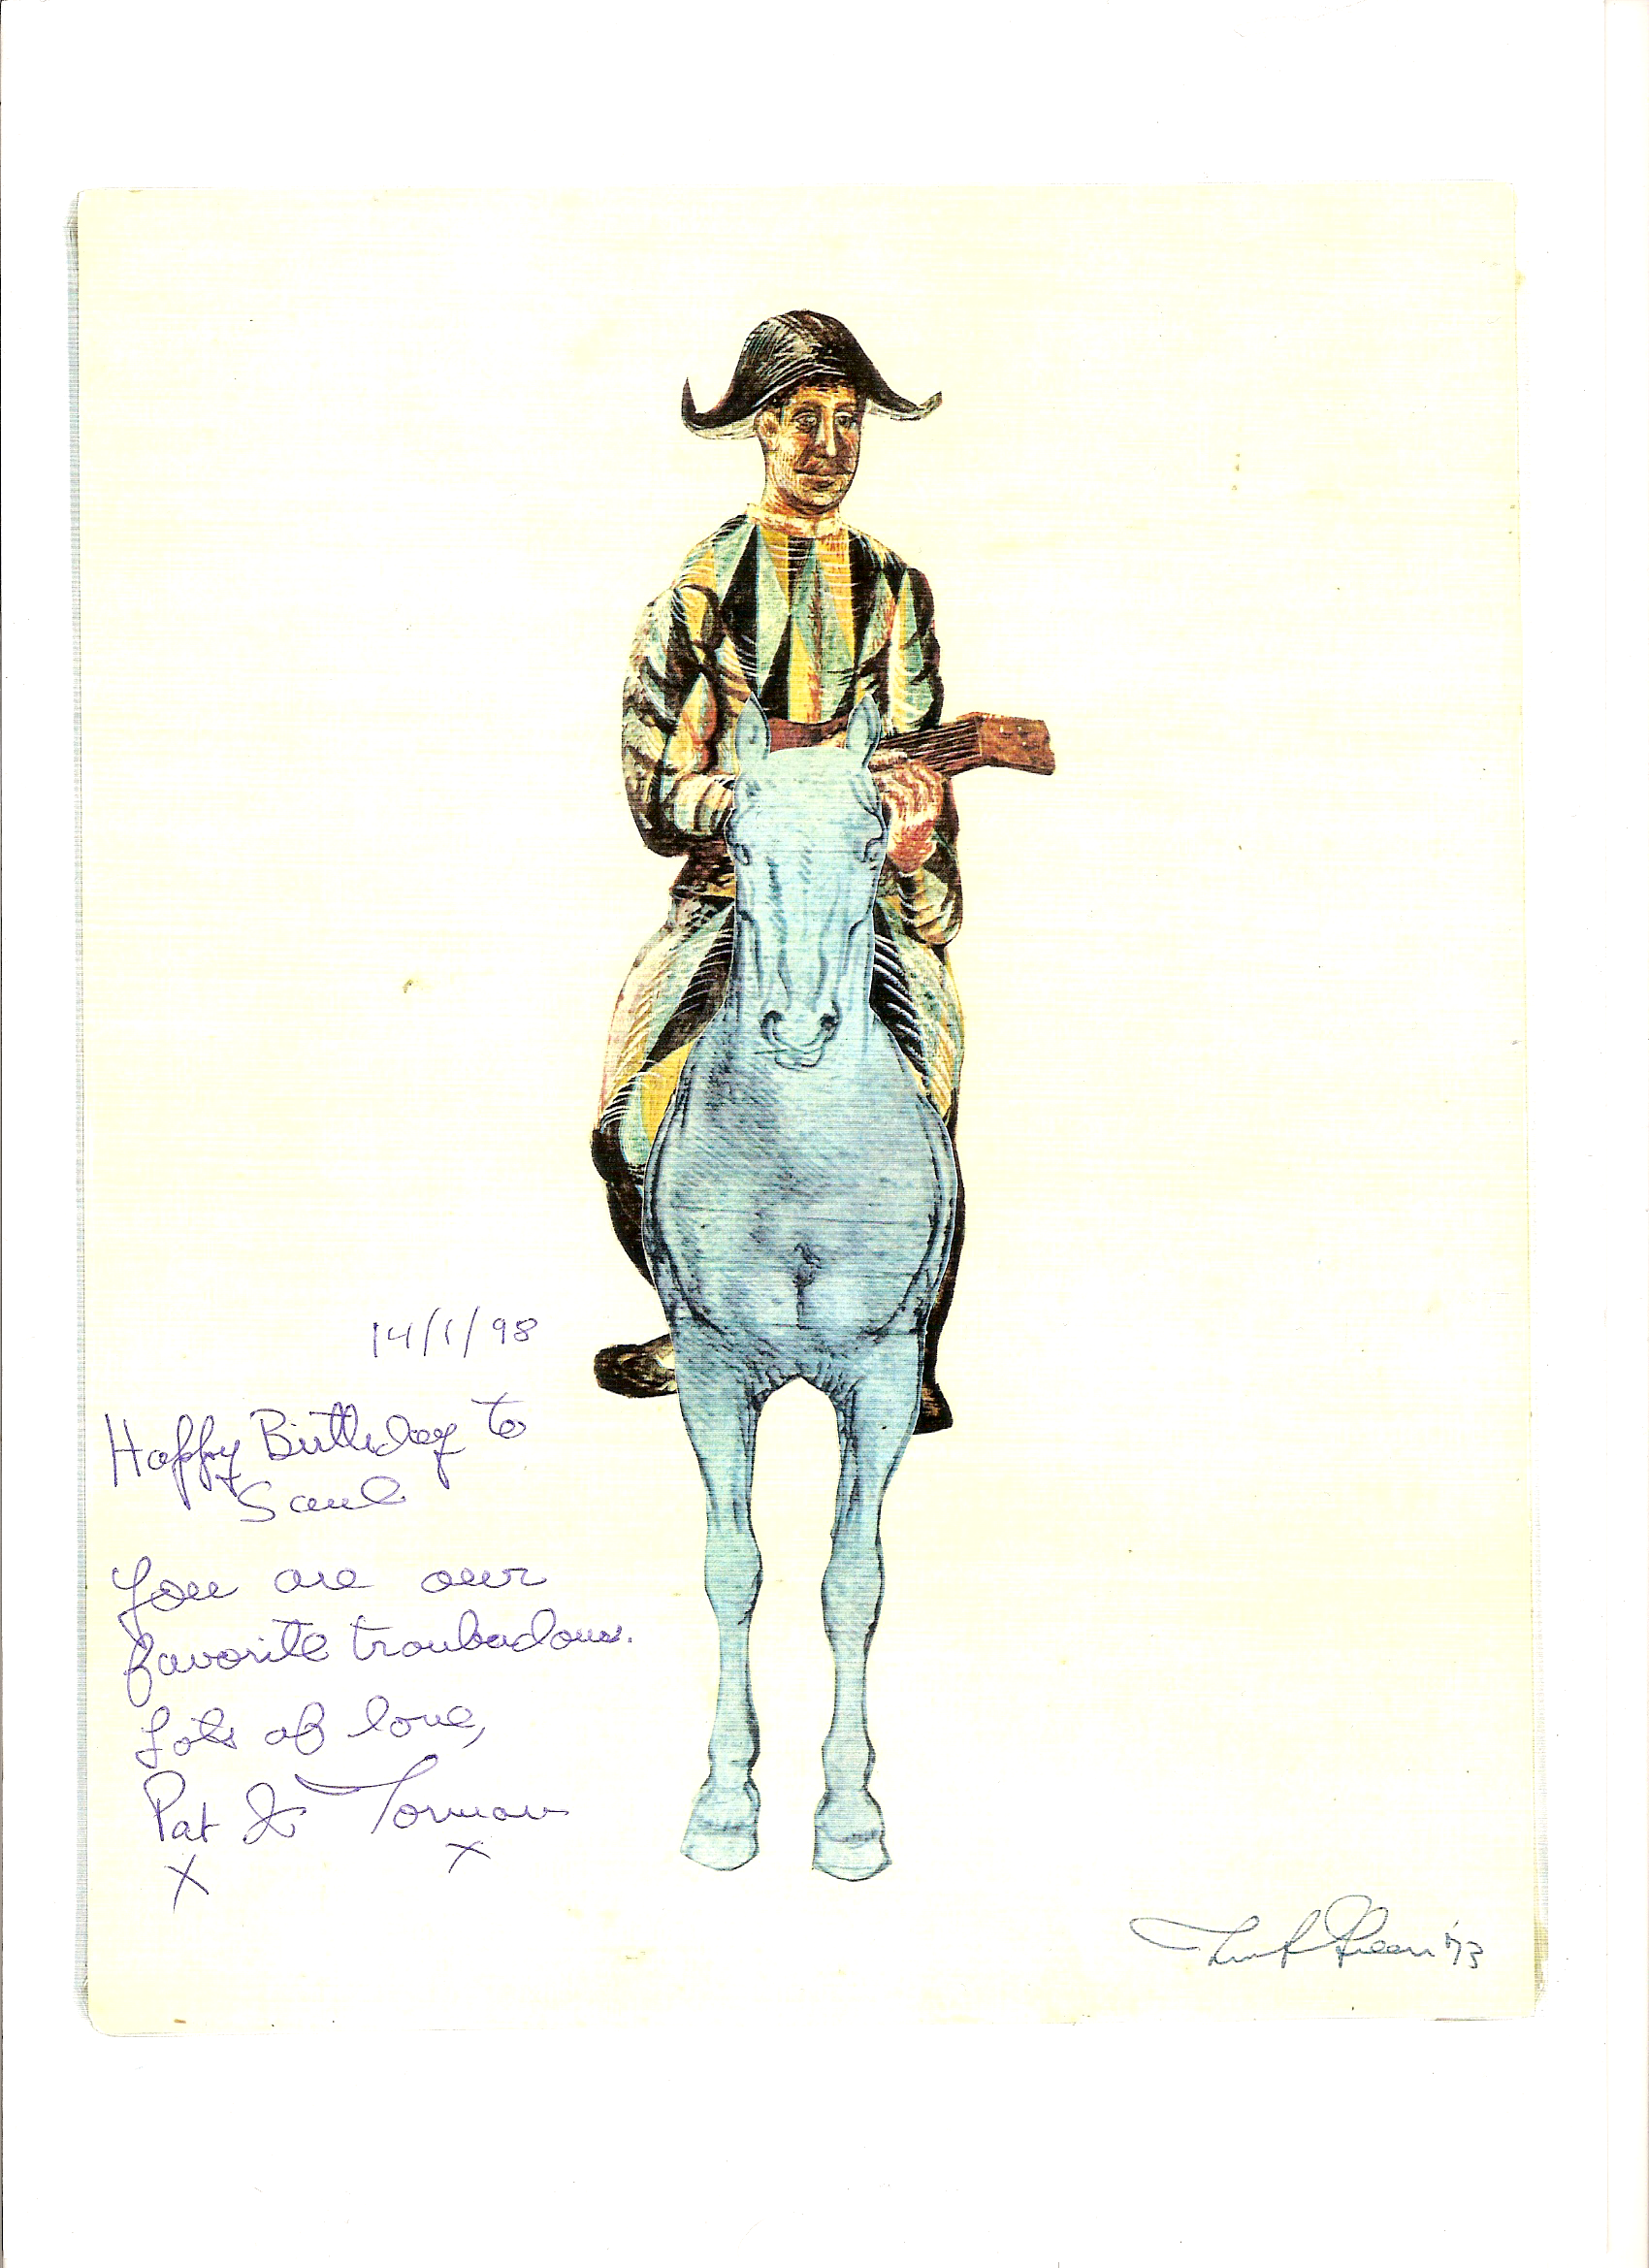 14/1/98
Happy Birthday to
Saul
You are our
favorite troubadour.
Lots of love,
Pat &
X X
'73